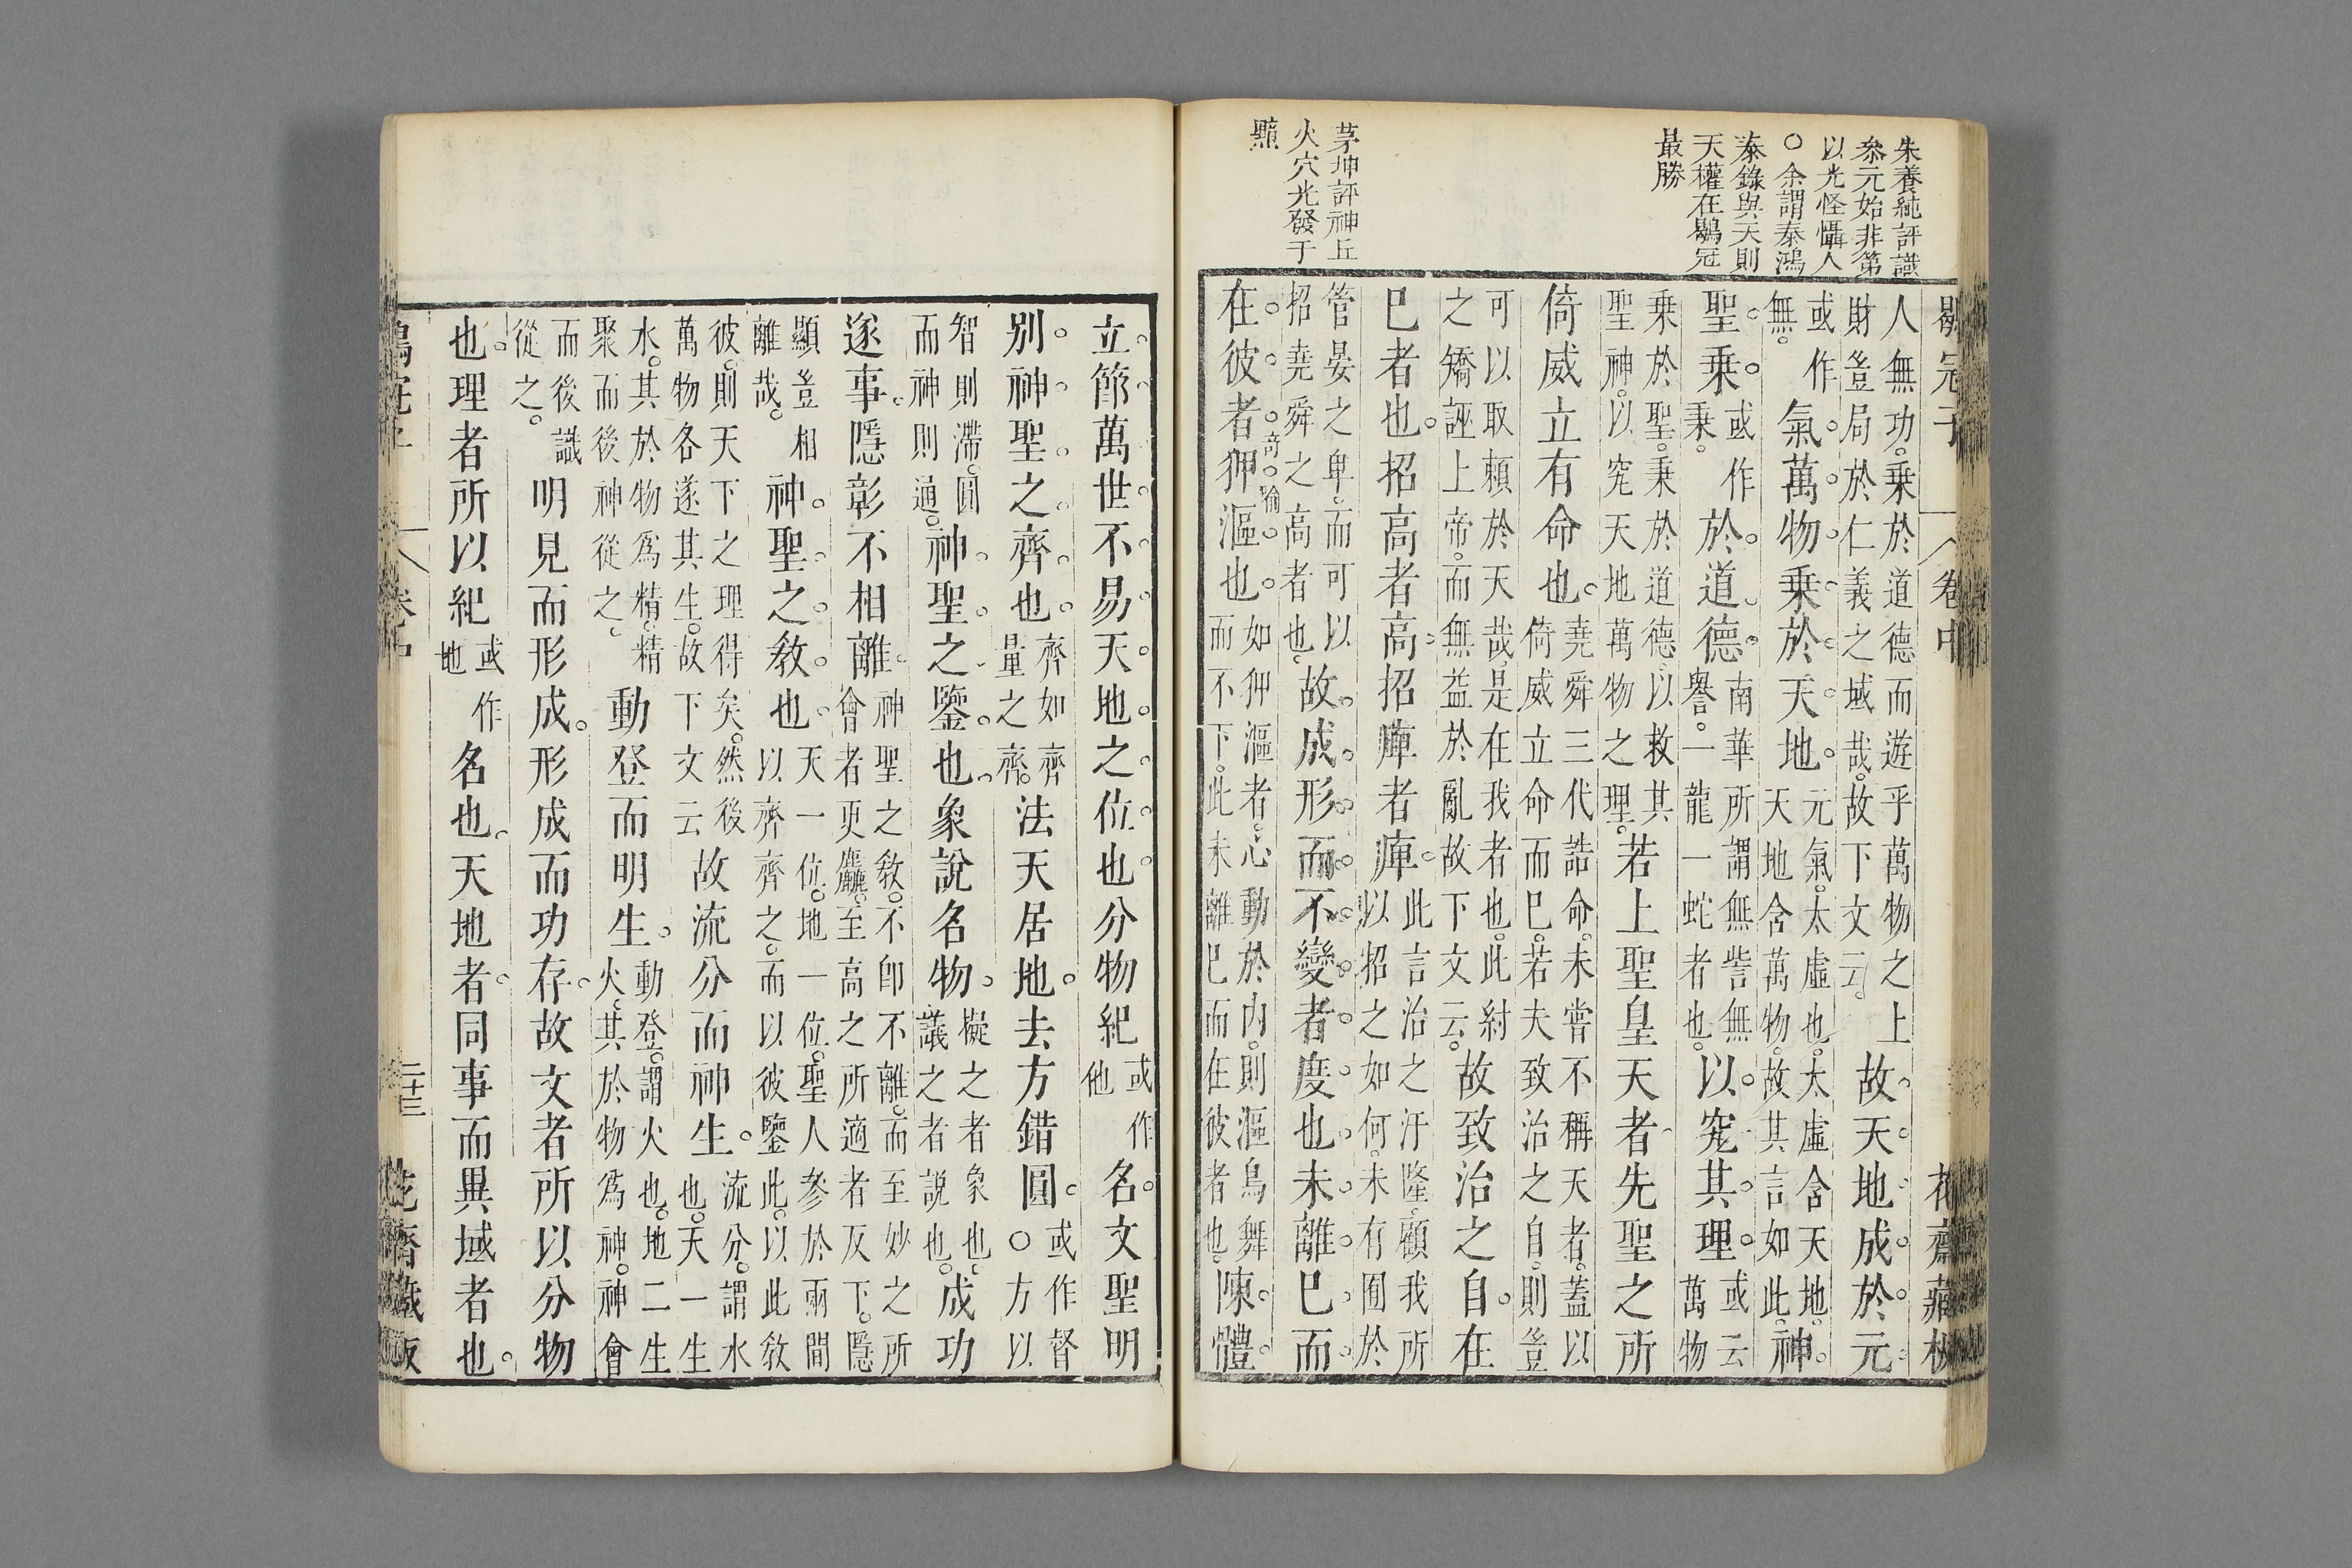 朱養純評識
叅元始非第
以光怪懾人
○余謂泰鴻
泰錄與天則
天權在鶡冠
最勝
茅坤評神丘
火穴光發于
顯
鶡冠子 卷中 花齋藏板
人無功。乘於道德而遊乎萬物之上財豈局於仁義之域哉。故下文云。故天地成於元
或作無。氣。萬物。乘於天地。元氣。太虛也。太虛含天地。天地含萬物。故其言如此。神
聖。乘或作秉。於道德。南華所謂無訾無譽。一龍一蛇者也。以究其理。或云萬物
乘於聖。乘於道德。以救其聖神。以究天地萬物之理。若上聖皇天者先聖之所
倚威立有命也。堯舜三代誥命。未嘗不稱天者。蓋以倚威立命而已。若夫致治之自。則豈
可以取賴於天哉。是在我者也。此紂之矯誣上帝。而無益於亂故下文云。故致治之自。在
已者也。招高者高招庳者庳。此言治之汙隆。顧我所以招之如何。未有囿於
管晏之卑。而可以招堯舜之高者也。故成形而不變者度也未離已而
在彼者狎漚也。如狎漚者。心動於內。則漚鳥舞而不下。此未離已而在彼者也。陳體
立節萬世不易天地之位也分物紀或作他名文聖明
別神聖之齊也。齊如齊量之齊。法天居地去方錯圓。或作督○方以
智則滯。圓而神則通。神聖之鑒也。象說名物。擬之者象也。議之者說也。成功
遂事。隱彰不相離神聖之敎。不卽不離。而至妙之所會者更麤。至高之所適者反下。隱
顯豈相離哉。神聖之敎也。天一位。地一位。聖人參於兩間以齊齊之。而以彼鑒此。以此敎
彼。則天下之理得矣。然後萬物各遂其生。故下文云故流分而神生。流分。謂水也。天一生
水。其於物爲精。精聚而後神從之。動登而明生。動登。謂火也。地二生火。其於物爲神。神會
而後識從之。明見而形成。形成而功存。故文者所以分物
也。理者所以紀或作地名也。天地者。同事而異域者也。
鶡冠子 卷中 二十三 花齋藏板